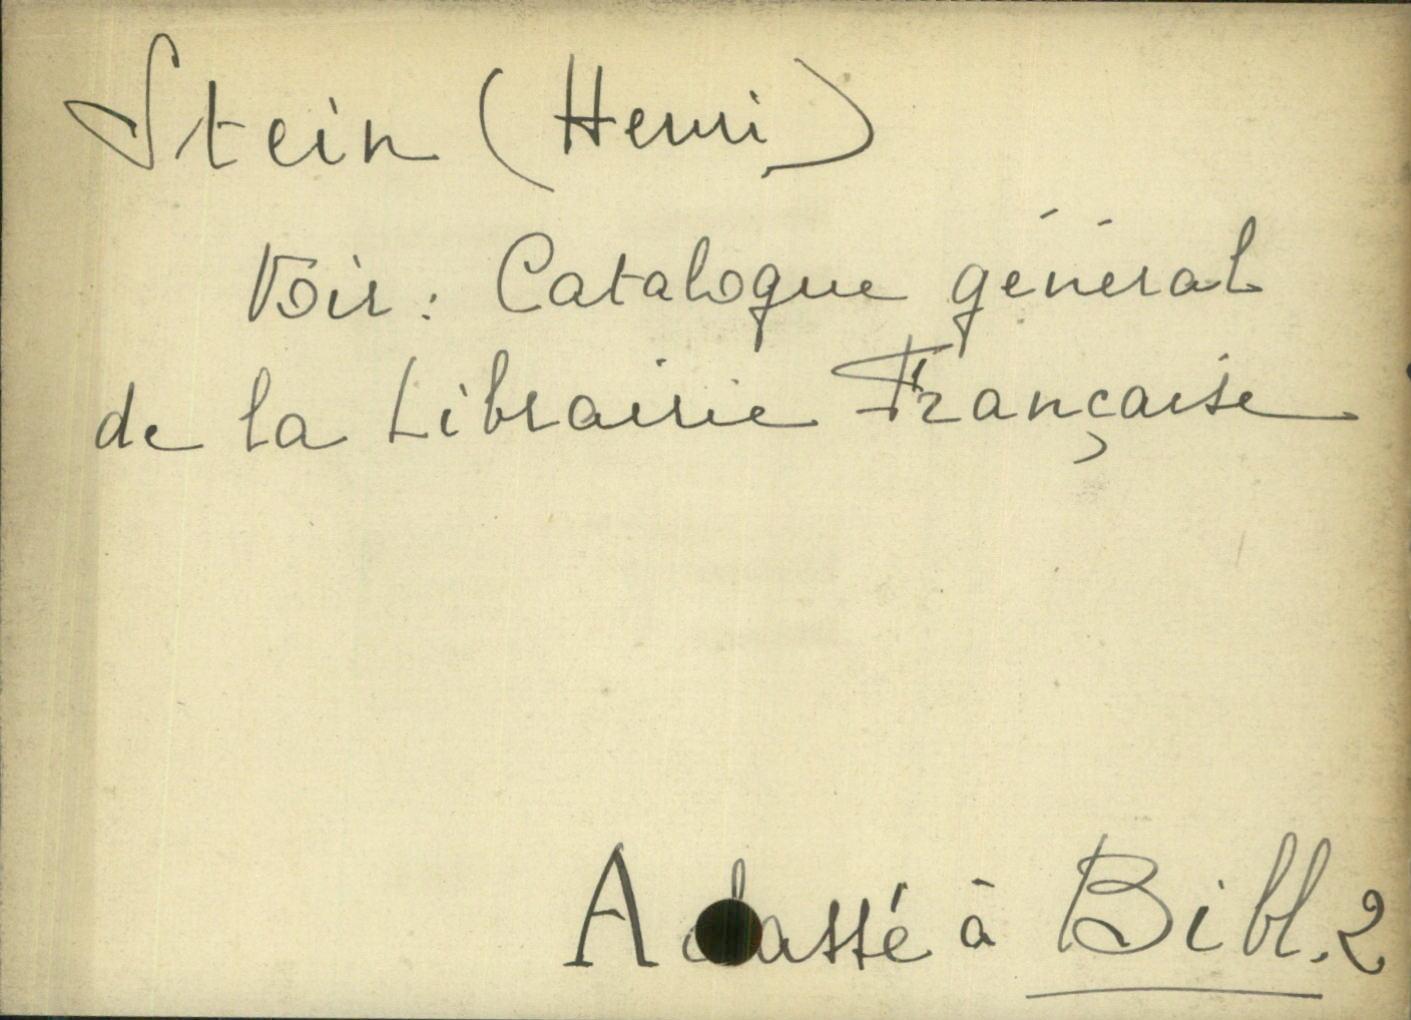 Stein (Henri)
Voir : Catalogue général
de la Librairie Française
A classé à Bibl. 2